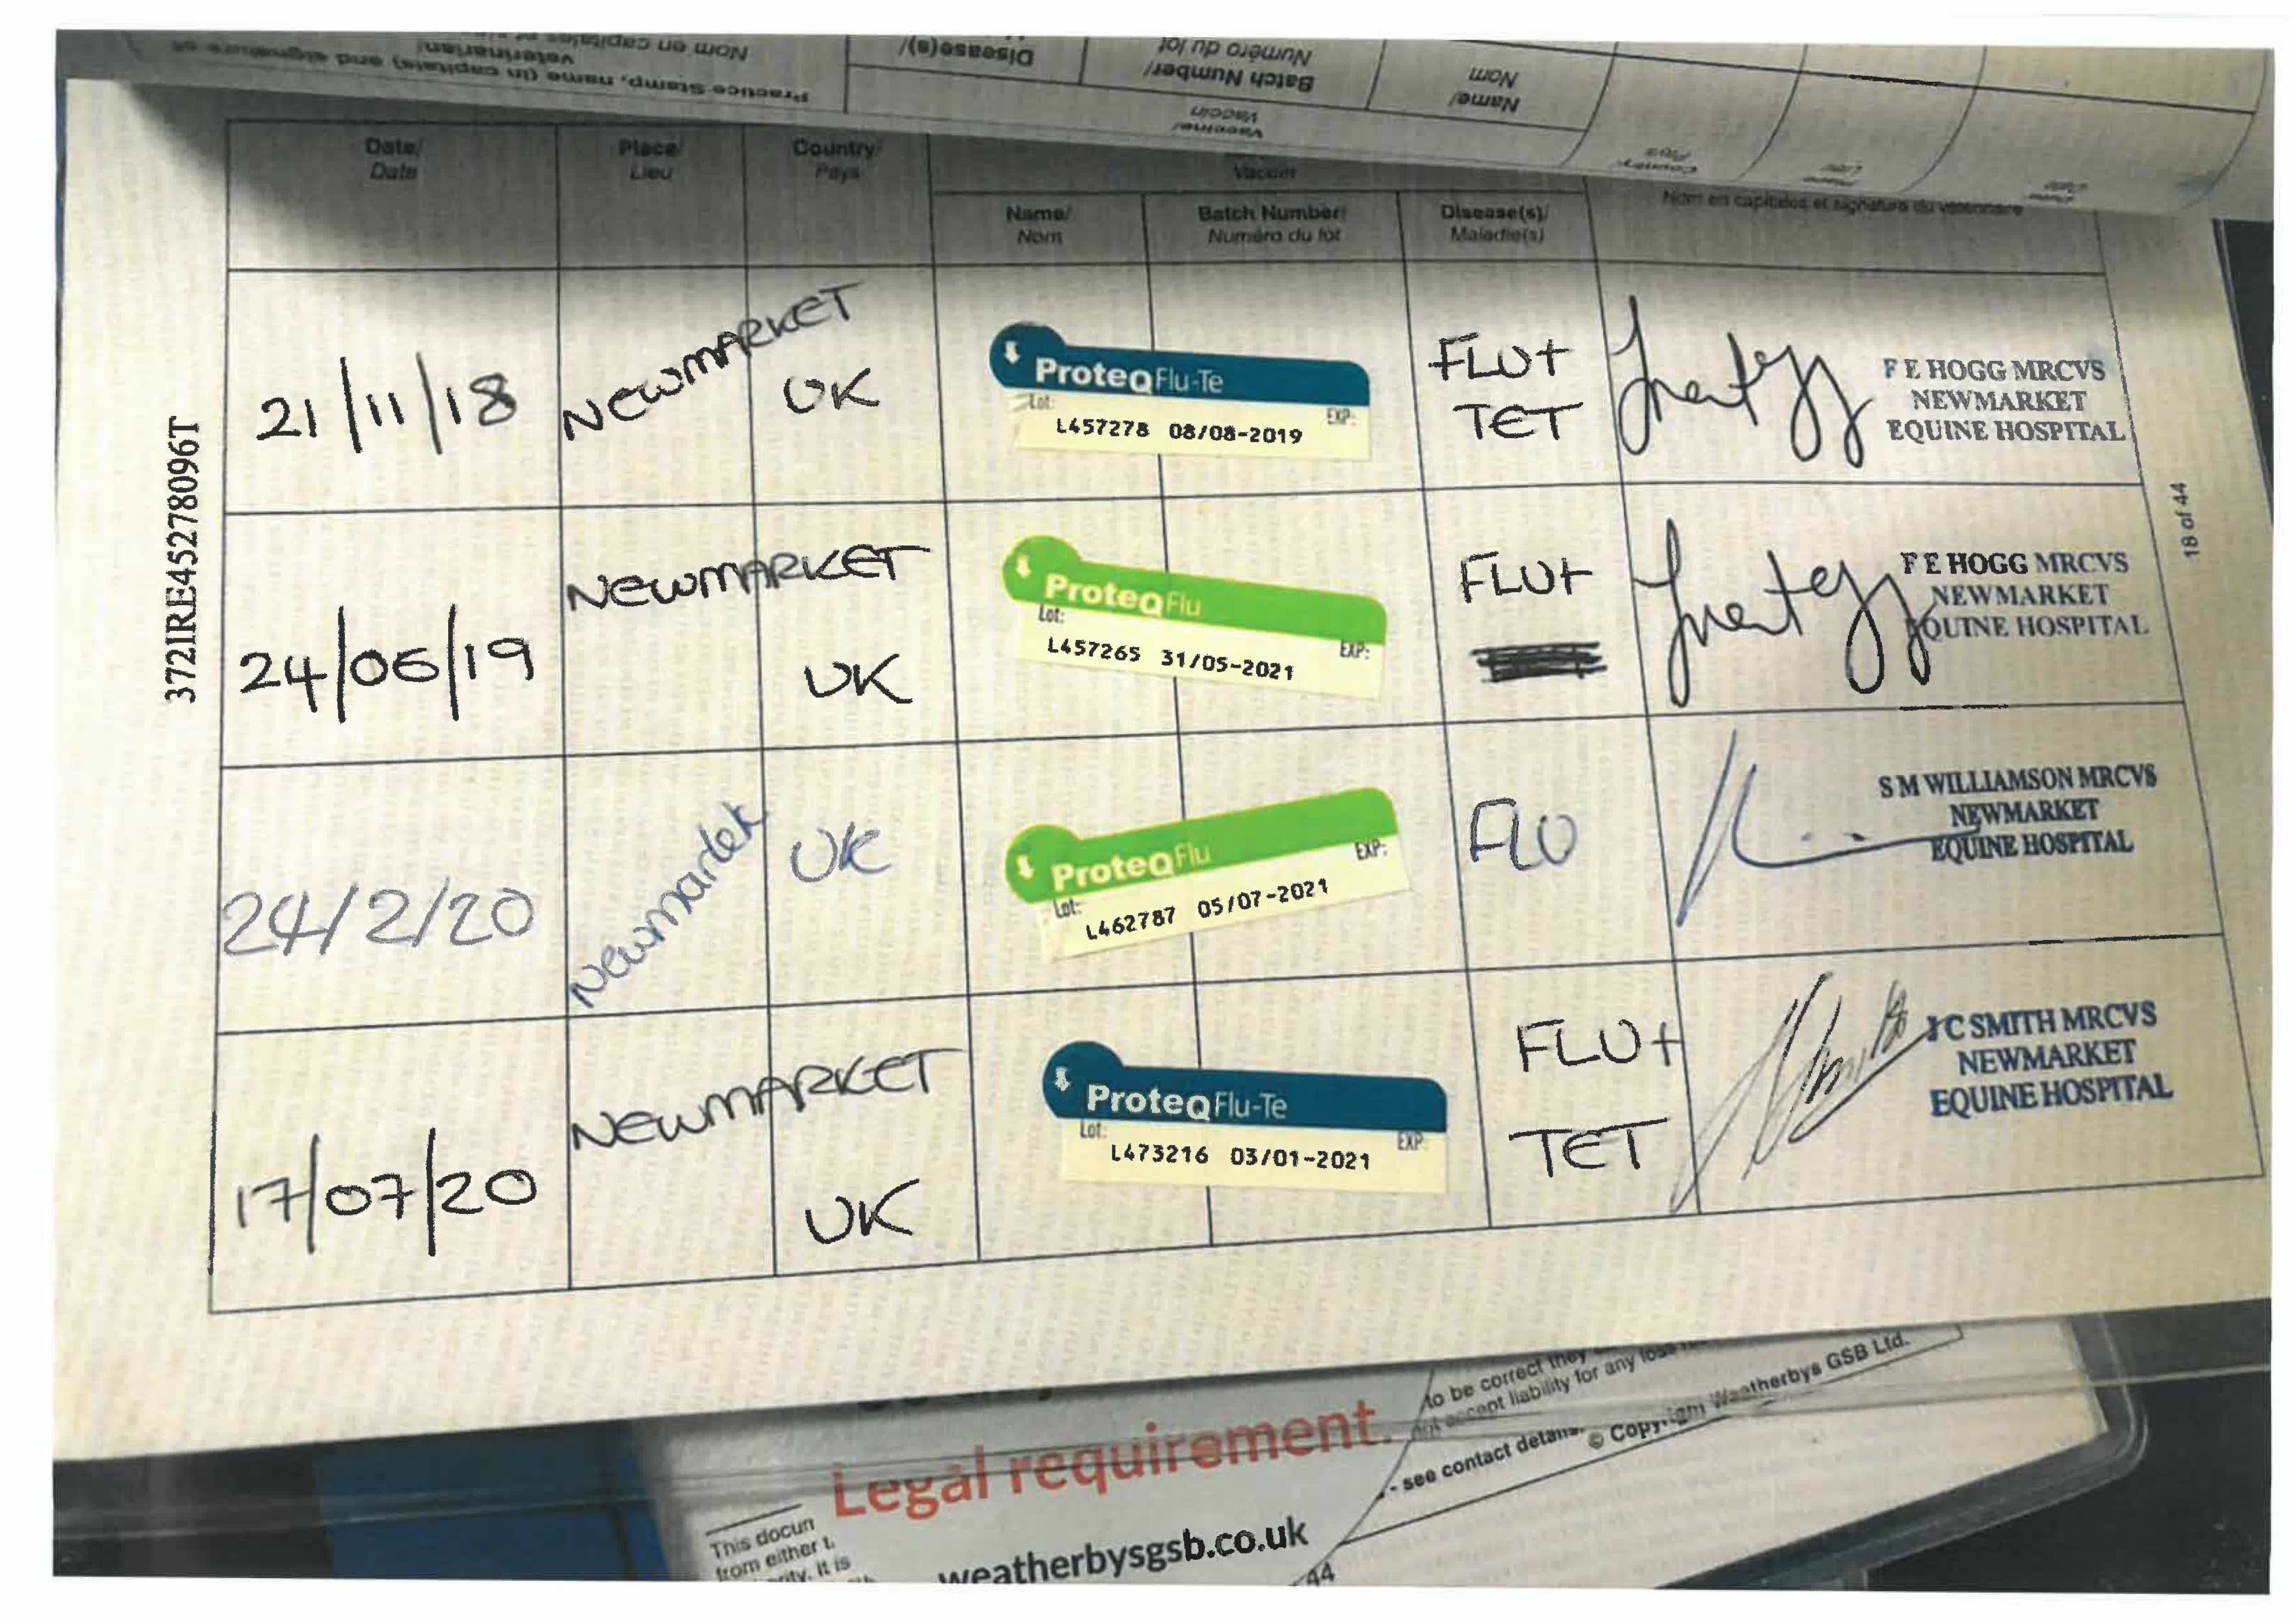 Practice Stamp, name (in capitals) and signature of
veterinarian/
Nom en capitales et
Disease(s)/
Vaccine/
Vaccin
Batch Number/
Numéro du lot
Name/
Nom
Country/
Pays
Place/
Lieu
Date/
Date
Date/
Date
Place/
Lieu
Country/
Pays
Vaccin
Name/
Nom
Batch Number/
Numéro du lot
Disease(s)/
Maladie(s)
Nom en capitales et signature du vétérinaire
372IRE45278096T
18 of 44
21/11/18
NEWMARKET
UK
ProteqFlu-Te
Lot: EXP:
L457278 08/08-2019
FLU+
TET
F E HOGG MRCVS
NEWMARKET
EQUINE HOSPITAL
24/06/19
NEWMARKET
UK
ProteqFlu
Lot: EXP:
L457265 31/05-2021
FLU+
F E HOGG MRCVS
NEWMARKET
EQUINE HOSPITAL
24/2/20
Newmarket
UK
ProteqFlu
Lot: EXP:
L462787 05/07-2021
FLU
S M WILLIAMSON MRCVS
NEWMARKET
EQUINE HOSPITAL
17/07/20
NEWMARKET
UK
ProteqFlu-Te
Lot: EXP:
L473216 03/01-2021
FLU+
TET
J C SMITH MRCVS
NEWMARKET
EQUINE HOSPITAL
Legal requirement.
to be correct they
not accept liability for any loss
- see contact details.
© Copyright Weatherbys GSB Ltd.
This docun
from either t
it is
weatherbysgsb.co.uk
44